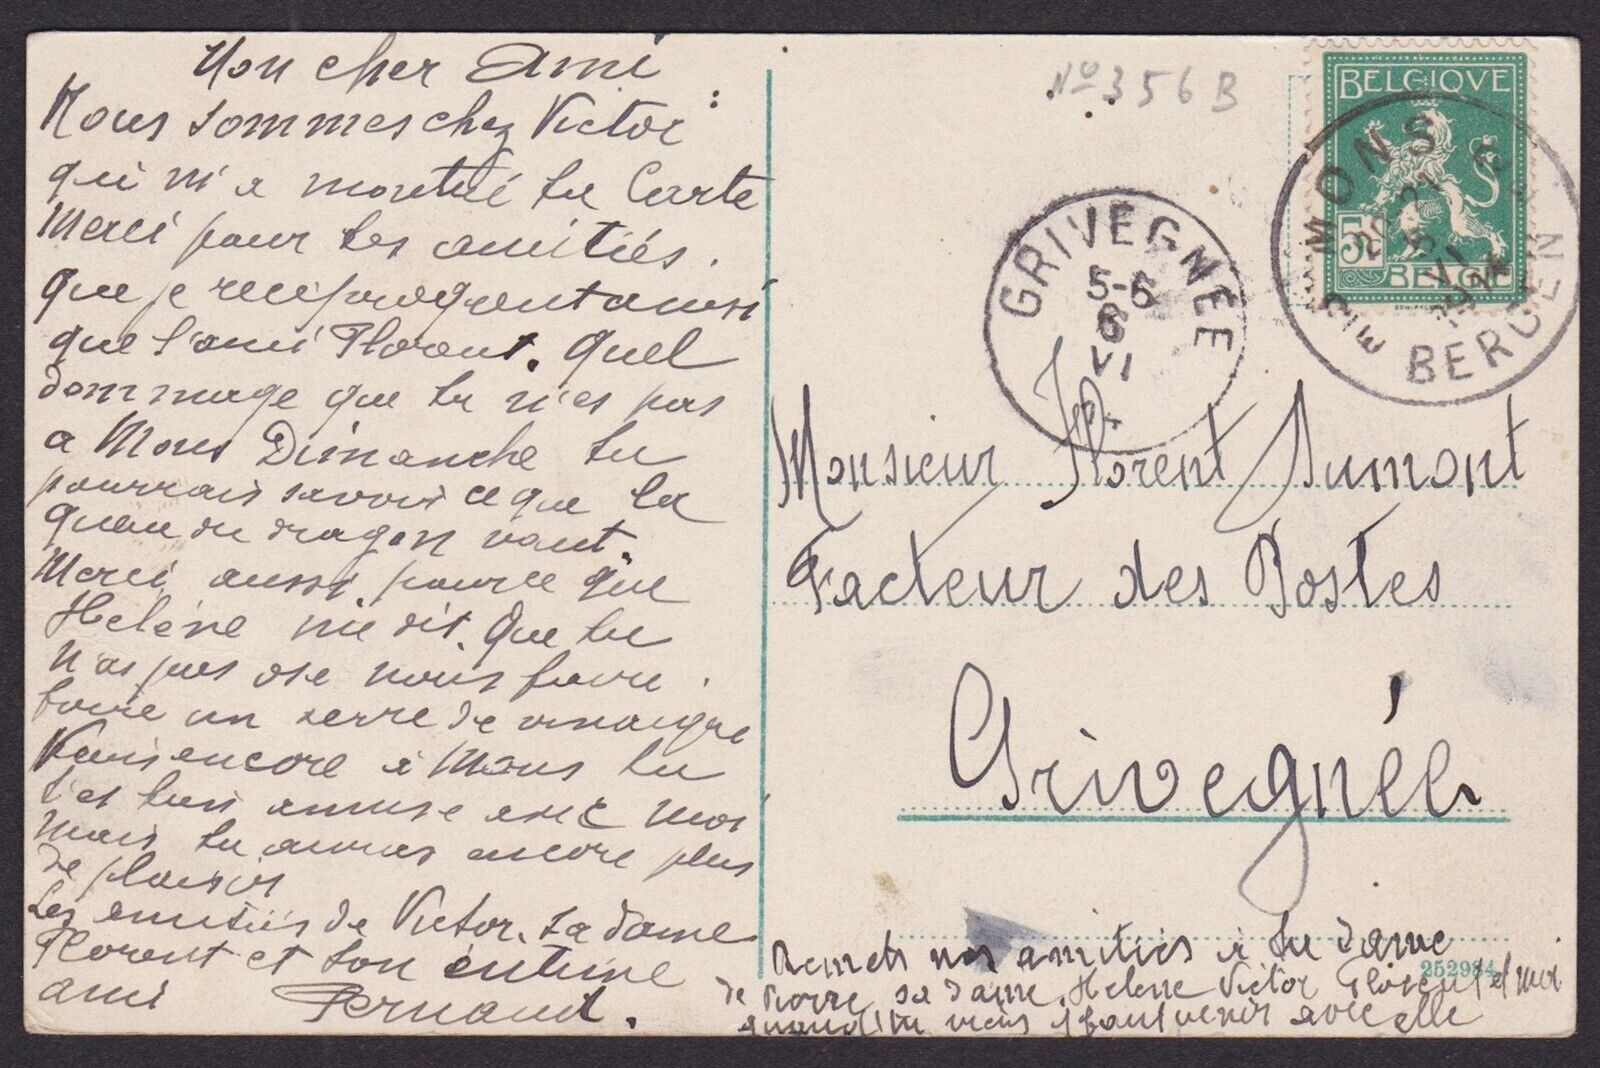 Mon cher Ami
Nous sommes chez Victor
qui m'a montré ta Carte
Merci pour tes amitiés.
que je reciproque ainsi
que l'ami Florent. Quel
dommage que tu n'es pas
a Mons Dimanche tu
pourrais savoir ce que la
queue du dragon vaut.
Merci aussi pour ce que
Helène m'a dit. Que tu
n'as pas ose nous faire
boire un verre de vinaigre
Viens encore à Mons tu
t'es bien amuse avec moi
mais tu auras encore plus
de plaisir
Les amitiés de Victor. sa dame
Florent et ton intime
ami Fernand.
Nº 356 B
BELGIQUE
5c 5c
BELGIË
MONS 6
20-21
5
VI
1914
BERGEN
GRIVEGNÉE
5-6
6
VI
Monsieur Florent Dumont
Facteur des Postes
Grivegnée
Remets nos amitiés à ta dame
de Victor sa dame. Helene Victor Florent et moi
quand tu viens il faut venir avec elle
252984